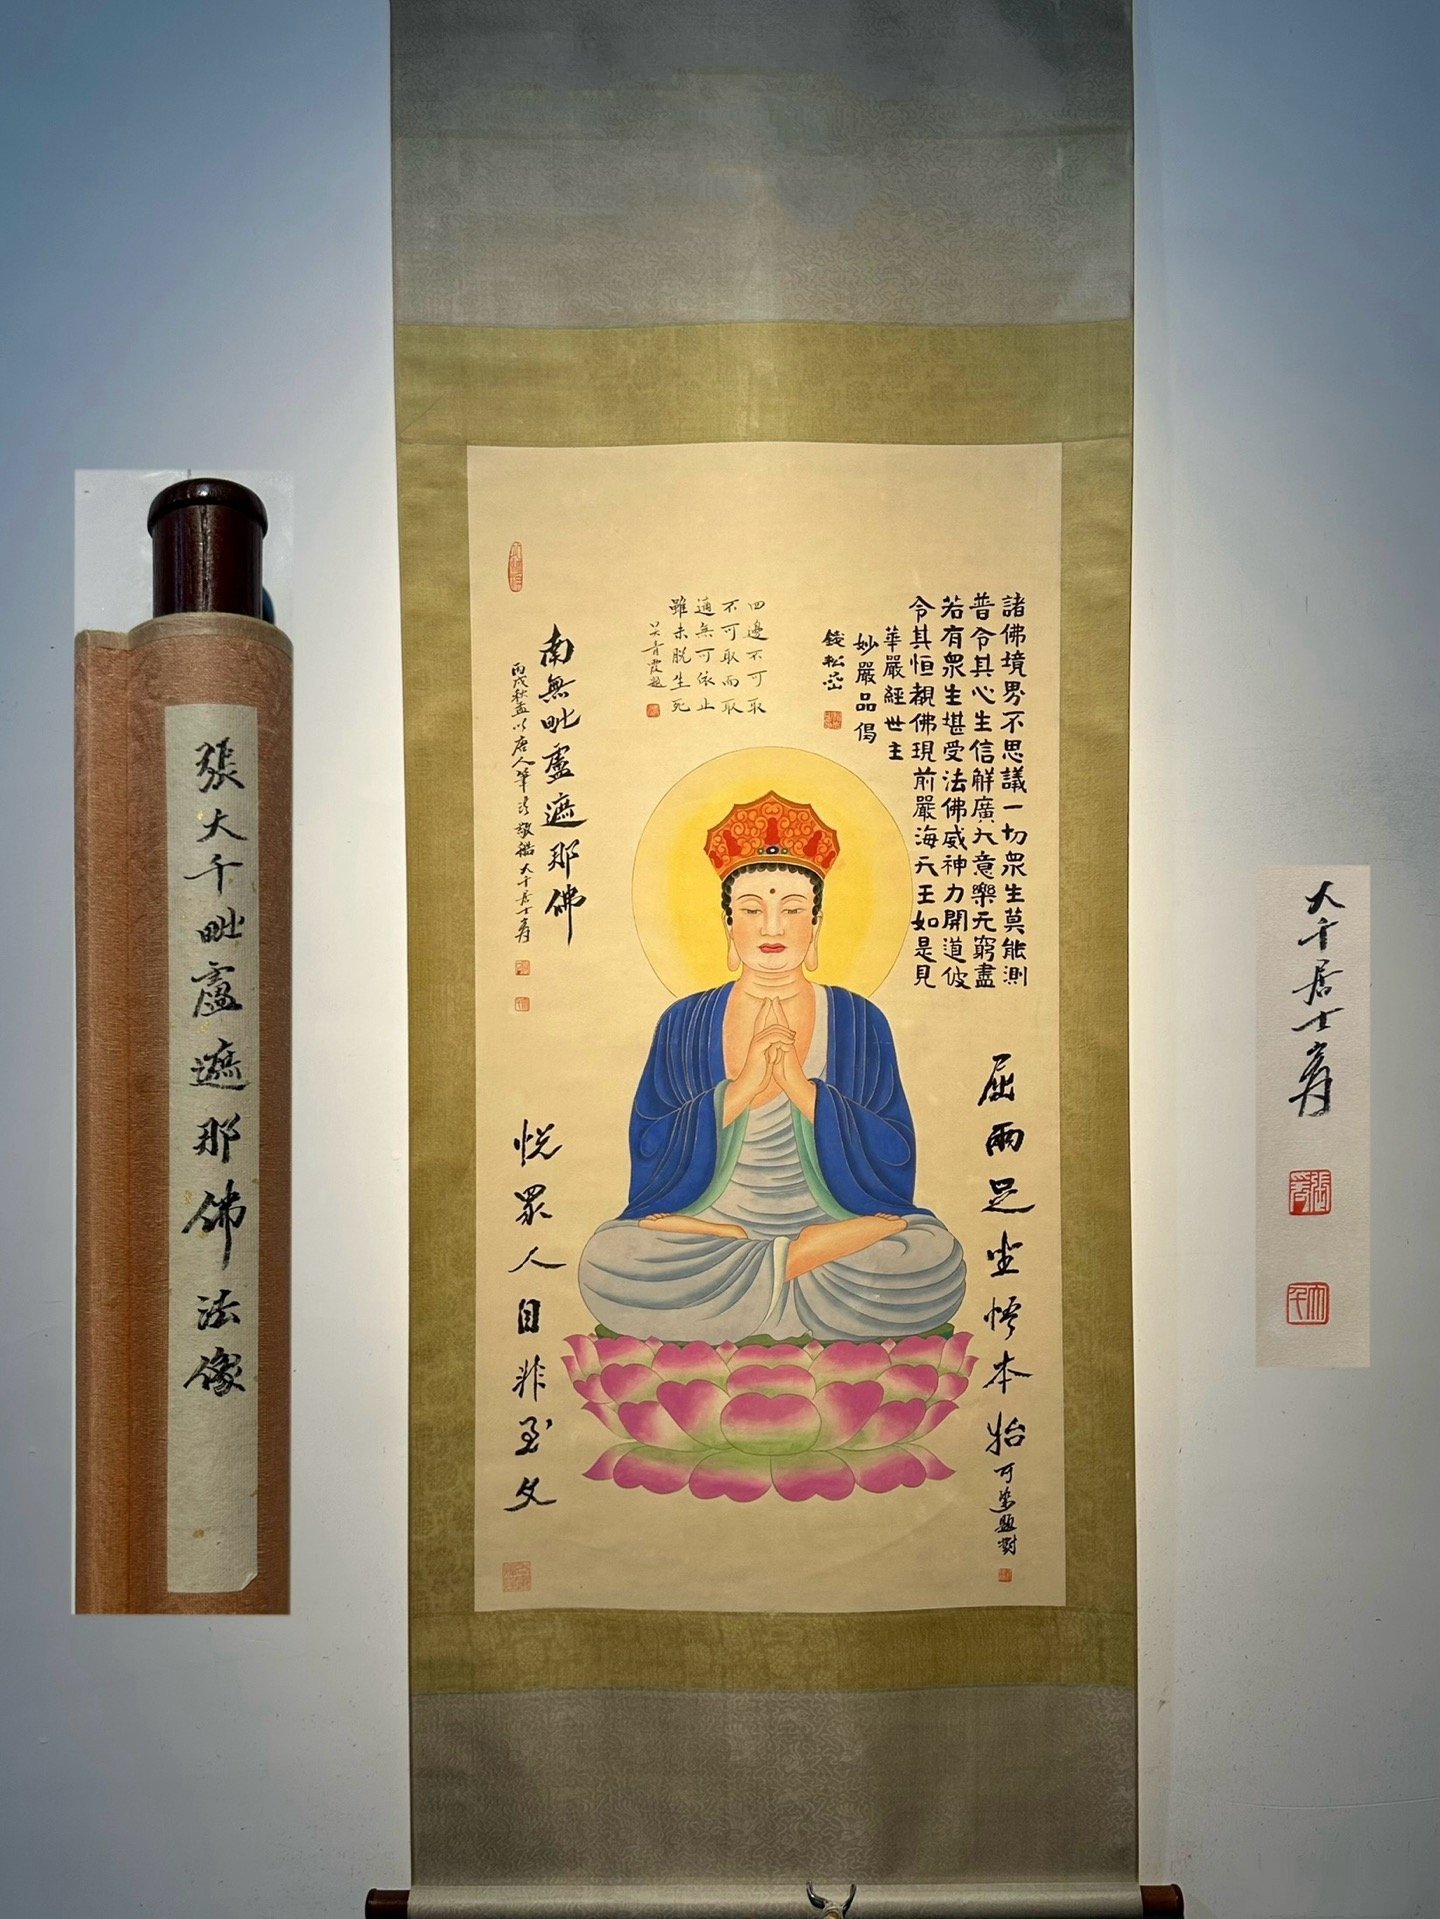 諸佛境界不思議一切眾生莫能測
普令其心生信解廣大意樂无窮盡
若有眾生堪受法佛威神力開道彼
令其恒觀佛現前嚴海天王如是見
華嚴經世主
妙嚴品偈
錢松嵒
四邊不可取
不可取而取
適無可依止
雖未脫生死
吳青霞題
南無毗盧遮那佛
丙戌秋孟以唐人筆法敬橅 大千居士爰
屈兩足坐悟本始
可染題對
悅眾人目非至文
張大千毗盧遮那佛法像
大千居士爰
張爰
大千